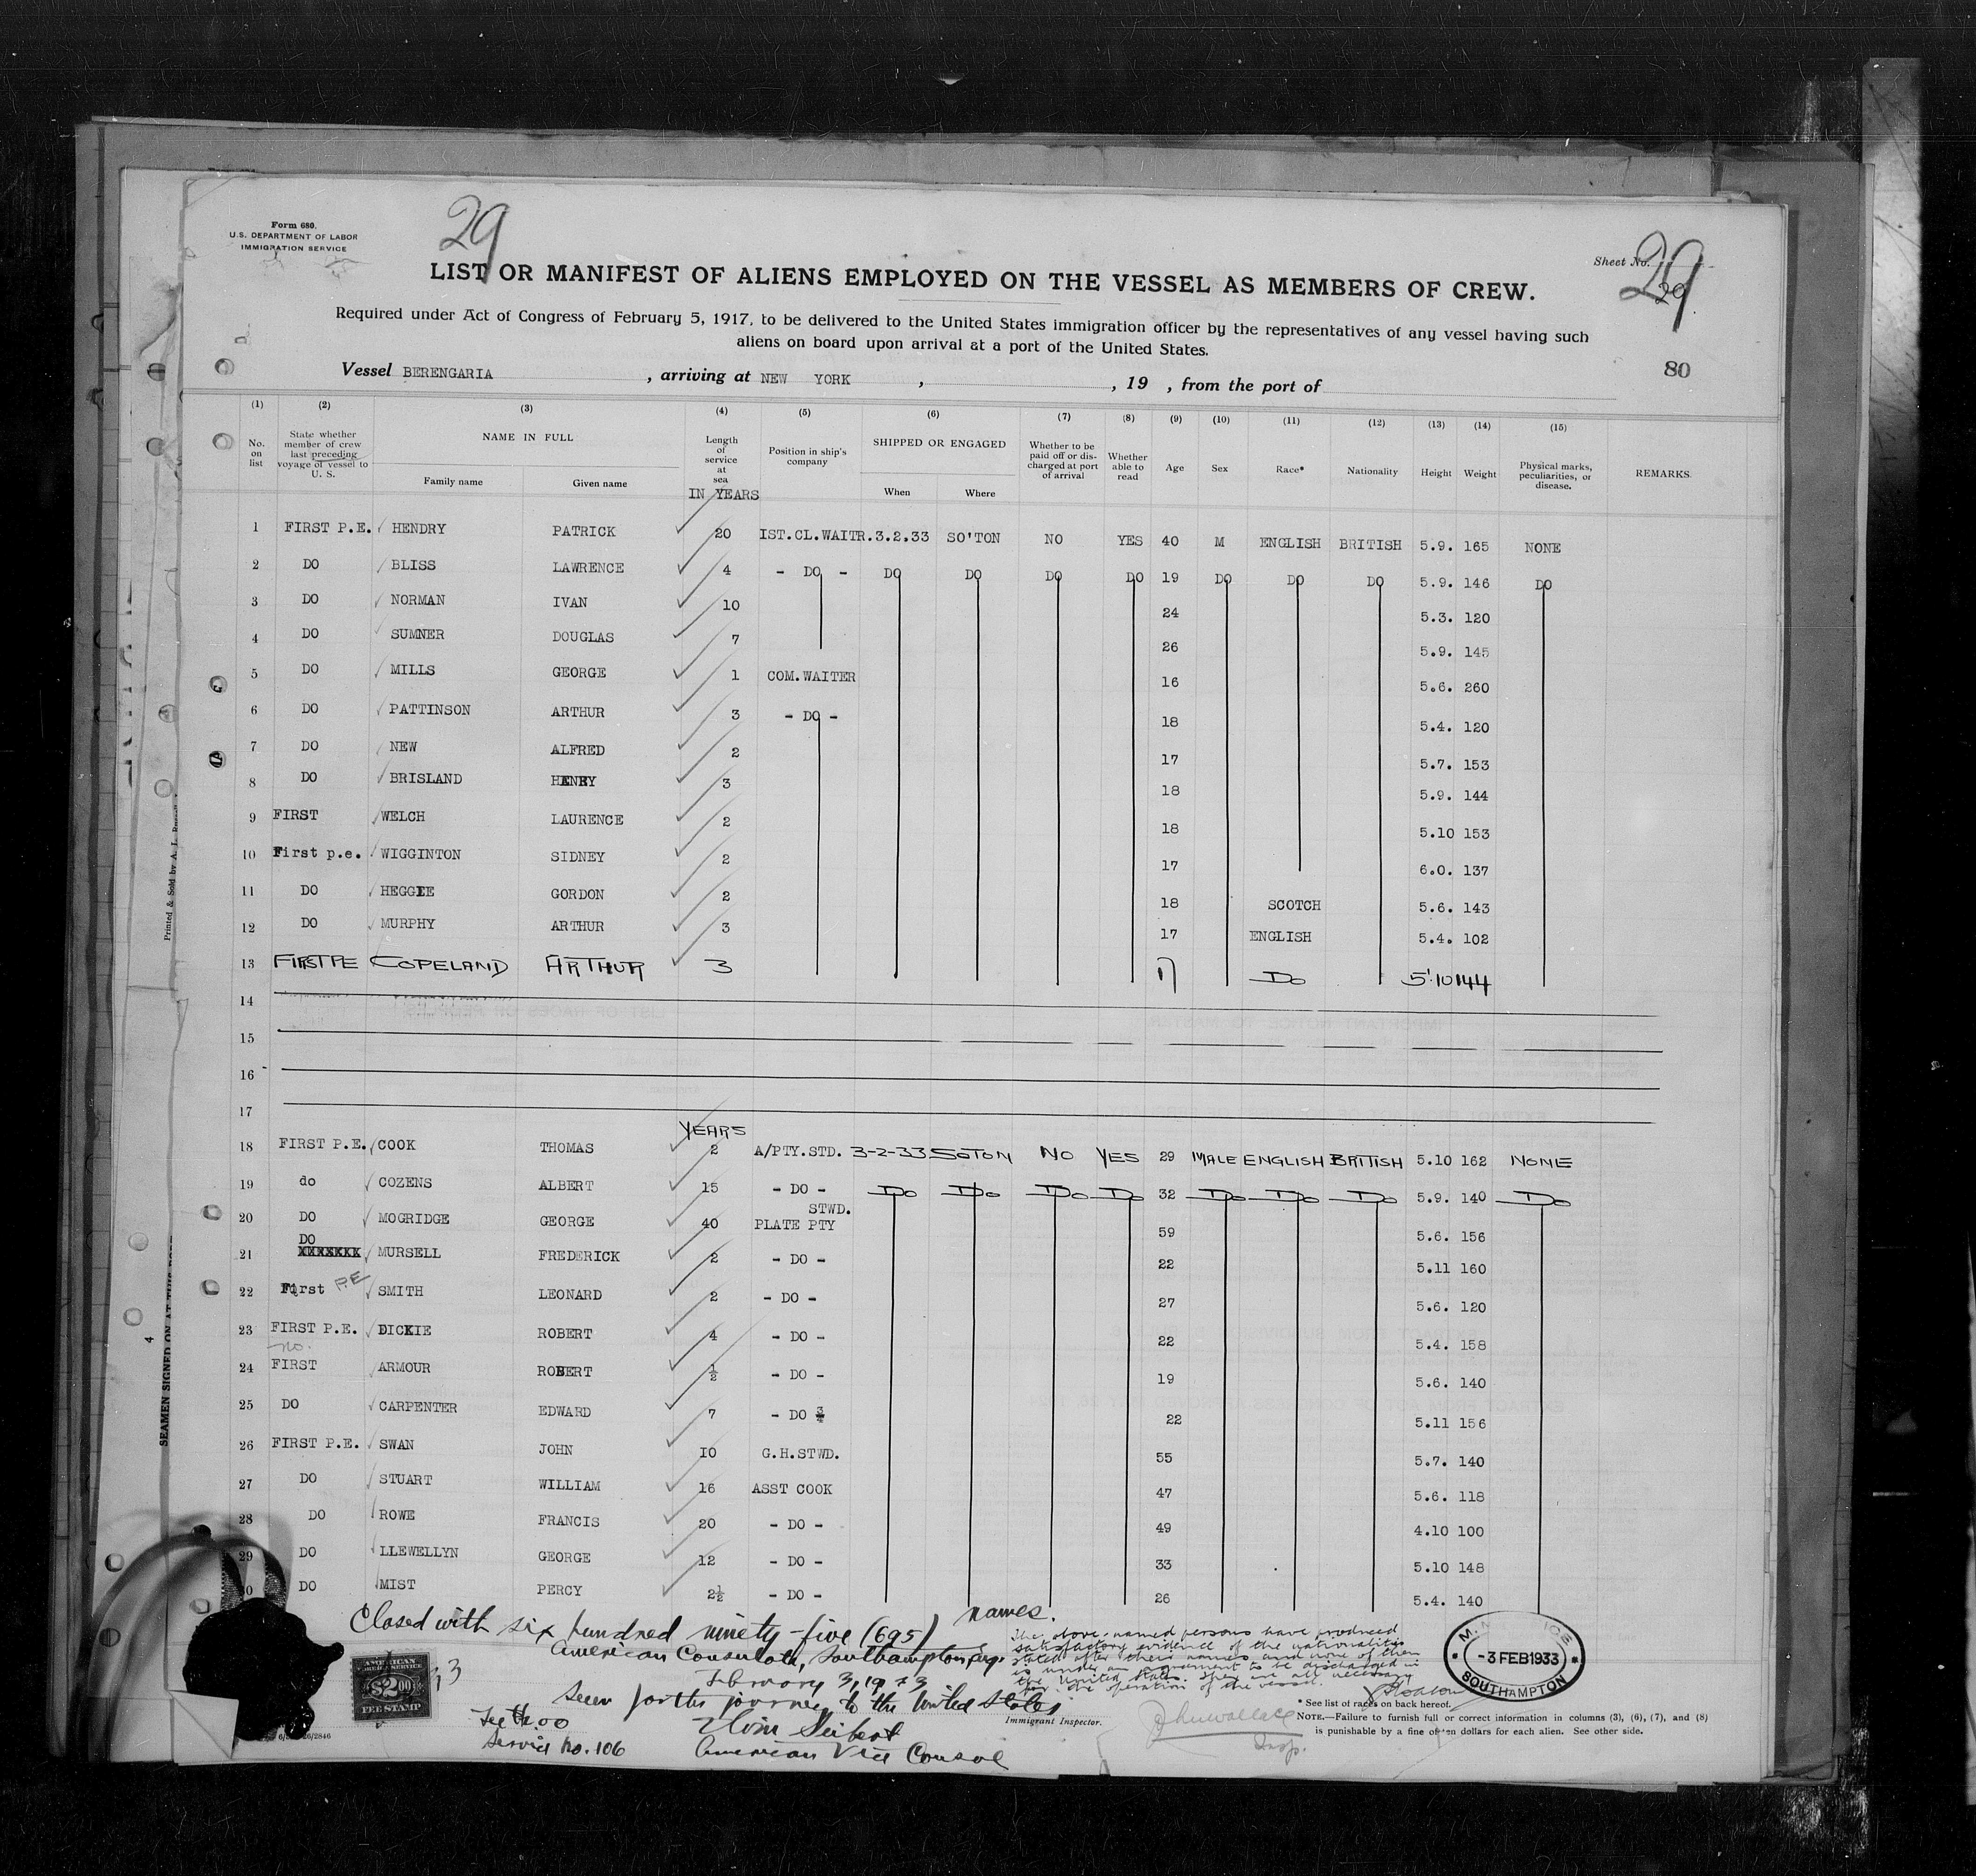 29
Form 680.
U.S. DEPARTMENT OF LABOR
IMMIGRATION SERVICE
Sheet No. 29
29
LIST OR MANIFEST OF ALIENS EMPLOYED ON THE VESSEL AS MEMBERS OF CREW.
Required under Act of Congress of February 5, 1917, to be delivered to the United States immigration officer by the representatives of any vessel having such
aliens on board upon arrival at a port of the United States.
80
Vessel BERENGARIA, arriving at NEW YORK, , 19 , from the port of
(1) (2) (3) (4) (5) (6) (7) (8) (9) (10) (11) (12) (13) (14) (15)
No. on list State whether member of crew last preceding voyage of vessel to U. S. NAME IN FULL Family name Given name Length of service at sea IN YEARS Position in ship's company SHIPPED OR ENGAGED When Where Whether to be paid off or discharged at port of arrival Whether able to read Age Sex Race* Nationality Height Weight Physical marks, peculiarities, or disease. REMARKS.
1 FIRST P.E. HENDRY PATRICK 20 IST.CL.WAITR. 3.2.33 SO'TON NO YES 40 M ENGLISH BRITISH 5.9. 165 NONE
2 DO BLISS LAWRENCE 4 - DO - DO DO DO DO 19 DO DO DO 5.9. 146 DO
3 DO NORMAN IVAN 10 24 5.3. 120
4 DO SUMNER DOUGLAS 7 26 5.9. 145
5 DO MILLS GEORGE 1 COM.WAITER 16 5.6. 260
6 DO PATTINSON ARTHUR 3 - DO - 18 5.4. 120
7 DO NEW ALFRED 2 17 5.7. 153
8 DO BRISLAND HENRY 3 18 5.9. 144
9 FIRST WELCH LAURENCE 2 18 5.10 153
10 First p.e. WIGGINTON SIDNEY 2 17 6.0. 137
11 DO HEGGIE GORDON 2 18 SCOTCH 5.6. 143
12 DO MURPHY ARTHUR 3 17 ENGLISH 5.4. 102
13 FIRST PE COPELAND ARTHUR 3 17 Do 5'.10 144
14
15
16
17
YEARS
18 FIRST P.E. COOK THOMAS 2 A/PTY.STD. 3-2-33 SOTON NO YES 29 MALE ENGLISH BRITISH 5.10 162 NONE
19 do COZENS ALBERT 15 - DO - Do Do Do Do 32 Do Do Do 5.9. 140 Do
20 DO MOGRIDGE GEORGE 40 PLATE PTY STWD. 59 5.6. 156
21 DO XXXXXXX MURSELL FREDERICK 2 - DO - 22 5.11 160
22 First P.E SMITH LEONARD 2 - DO - 27 5.6. 120
23 FIRST P.E. DICKIE ROBERT 4 - DO - 22 5.4. 158
no.
24 FIRST ARMOUR ROBERT ½ - DO - 19 5.6. 140
25 DO CARPENTER EDWARD 7 - DO ¾ 22 5.11 156
26 FIRST P.E. SWAN JOHN IO G.H.STWD. 55 5.7. 140
27 DO STUART WILLIAM 16 ASST COOK 47 5.6. 118
28 DO ROWE FRANCIS 20 - DO - 49 4.10 100
29 DO LLEWELLYN GEORGE 12 - DO - 33 5.10 148
30 DO MIST PERCY 2½ - DO - 26 5.4. 140
Closed with six hundred ninety-five (695) names.
American Consulate, Southampton, Eng.
February 3, 1933
Seen for the journey to the United States
Fee $2.00
Service No. 106
American Vice Consul
AMERICAN FOREIGN SERVICE
$2.00
FEE STAMP
The above-named persons have produced
satisfactory evidence of the nationalities
stated after their names and none of them
is under an agreement to be discharged in
the United States. They are all necessary
for the operation of the vessel.
Immigrant Inspector.
Insp.
-3 FEB 1933
SOUTHAMPTON
* See list of races on back hereof.
NOTE.—Failure to furnish full or correct information in columns (3), (6), (7), and (8)
is punishable by a fine of ten dollars for each alien. See other side.
Printed & Sold by A. L.
4
SEAMEN SIGNED ON AT THIS PORT